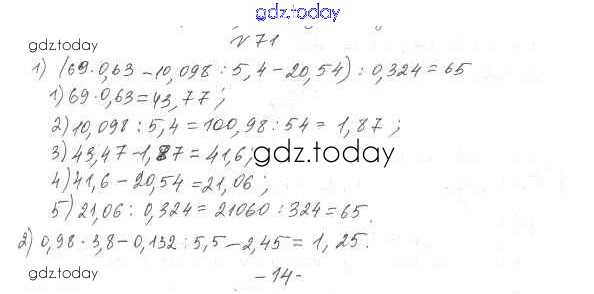 gdz.today
№71
gdz.today
1) (69·0,63-10,098:5,4-20,54):0,324=65
1) 69·0,63=43,77;
2) 10,098:5,4=100,98:54=1,87;
3) 43,47-1,87=41,6;
gdz.today
4) 41,6-20,54=21,06;
5) 21,06:0,324=21060:324=65.
2) 0,98·3,8-0,132:5,5-2,45=1,25.
gdz.today
-14-
gdz.today